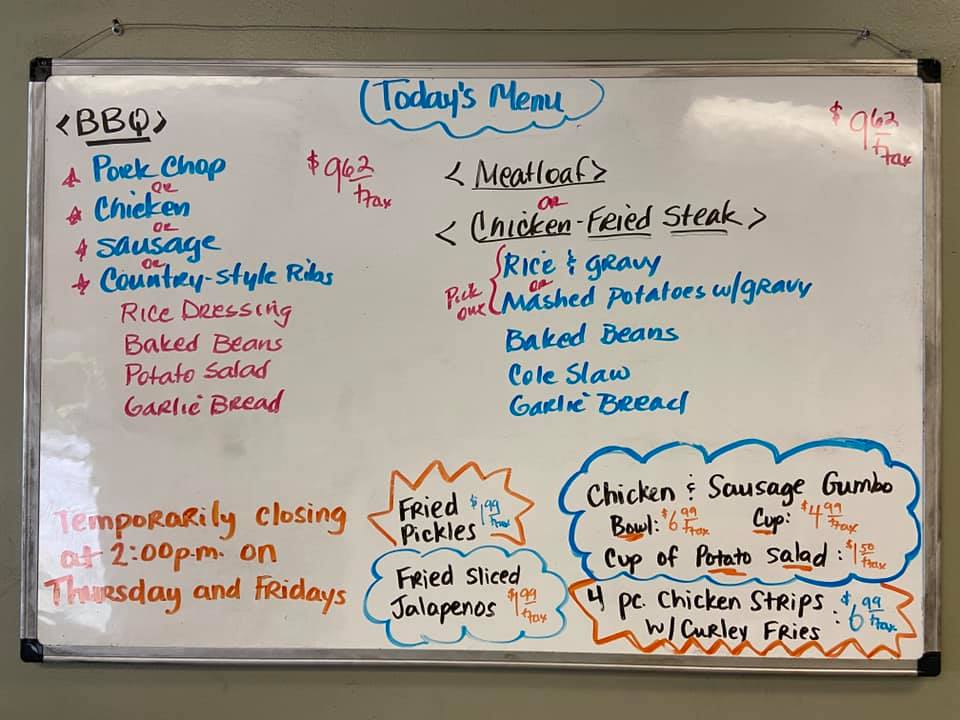 Today's Menu
<BBQ>
$9.62 + tax
Pork Chop
OR
Chicken
OR
Sausage
OR
Country-Style Ribs
Rice Dressing
Baked Beans
Potato Salad
Garlic Bread
$9.62 + tax
<Meatloaf>
OR
<Chicken-Fried Steak>
Pick one
Rice & gravy
OR
Mashed Potatoes w/gravy
Baked Beans
Cole Slaw
Garlic Bread
Temporarily closing
at 2:00p.m. on
Thursday and Fridays
Fried Pickles $1.99 + tax
Fried Sliced
Jalapenos $1.99 + tax
Chicken & Sausage Gumbo
Bowl: $6.99 + tax Cup: $4.99 + tax
Cup of Potato Salad: $1.50 + tax
4 pc. Chicken Strips : $6.99 + tax
w/ Curley Fries